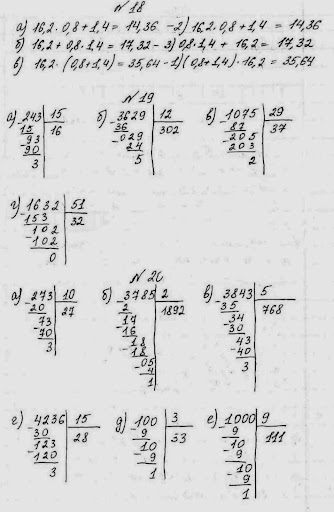 N 18
а) 16,2 · 0,8 + 1,4 = 14,36 – 2) 16,2 · 0,8 + 1,4 = 14,36
б) 16,2 + 0,8 · 1,4 = 17,32 – 3) 0,8 · 1,4 + 16,2 = 17,32
в) 16,2 · (0,8 + 1,4) = 35,64 – 1) (0,8 + 1,4) · 16,2 = 35,64
N 19
а) -243 | 15
15 | 16
-93
90
3
б) -3629 | 12
36 | 302
-029
24
5
в) -1075 | 29
87 | 37
-205
203
2
г) -1632 | 51
153 | 32
-102
102
0
N 20
а) -273 | 10
20 | 27
-73
70
3
б) -3785 | 2
2 | 1892
-17
16
-18
18
-05
4
1
в) -3843 | 5
35 | 768
-34
30
-43
40
3
г) -4236 | 15
30 | 28
-123
120
3
д) -100 | 3
9 | 33
-10
9
1
е) -1000 | 9
9 | 111
-10
9
-10
9
1